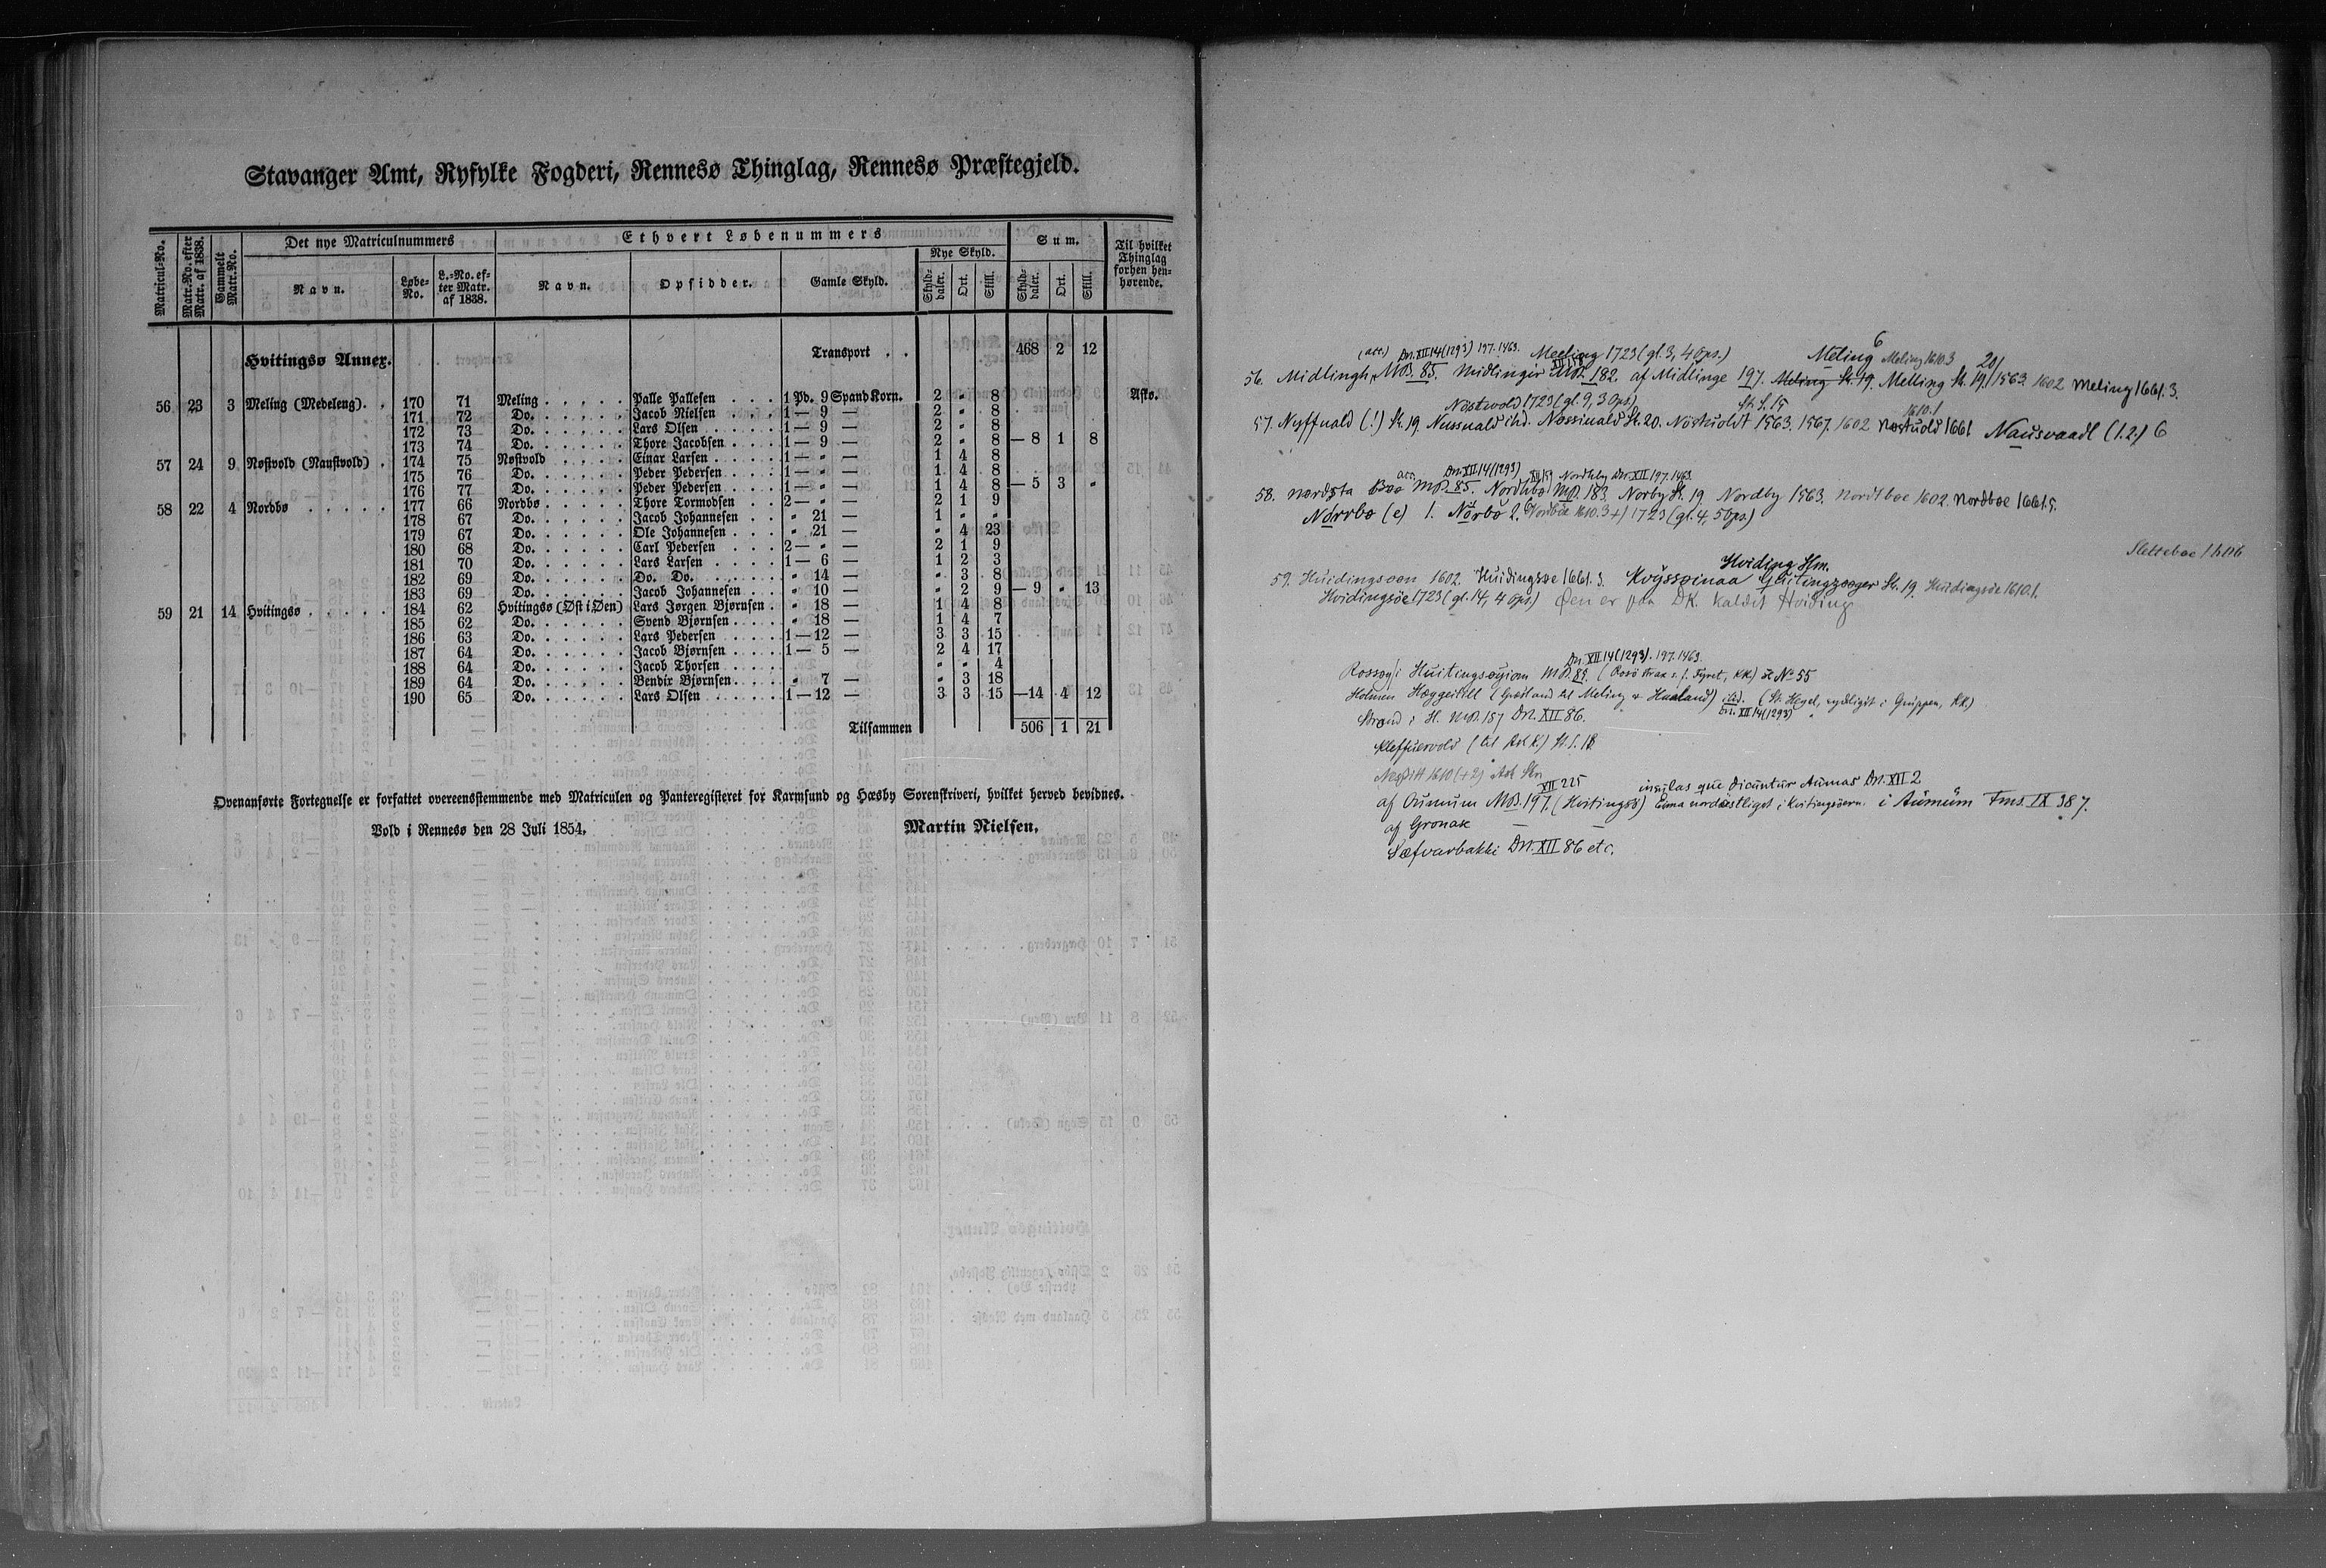 Stavanger Amt, Ryfylke Fogderi, Rennesø Thinglag, Rennesø Præstegjeld.
Matricul-No. Matr.-No. efter Matr. af 1838. Gammelt Matr.-No. Det nye Matriculnummers Ethvert Løbenummers Sum. Til hvilket Thinglag forhen henhørende.
Navn. Løbe-No. L.-No. efter Matr. af 1838. Navn. Opsidder. Gamle Skyld. Nye Skyld.
Skylddaler. Ort. Skill. Skylddaler. Ort. Skill.
Hvitingsø Annex. Transport . . 468 2 12
56 23 3 Meling (Medeleng) . . 170 71 Meling . . . . . Palle Pallesen . . . 1 Pd. 9 Spand Korn. 2 „ 8 Asko.
171 72 Do. . . . . . Jacob Nielsen . . . 1 — 9 — 2 „ 8
172 73 Do. . . . . . Lars Olsen . . . . . 1 — 9 — 2 „ 8
173 74 Do. . . . . . Thore Jacobsen . . . 1 — 9 — 2 „ 8 — 8 1 8
57 24 9 Nøstvold (Naustvold) . 174 75 Nøstvold . . . . Einar Larsen . . . . 1 — „ — 1 4 8
175 76 Do. . . . . . Peder Pedersen . . . 1 — „ — 1 4 8
176 77 Do. . . . . . Peder Pedersen . . . 1 — „ — 1 4 8 — 5 3 „
58 22 4 Nordbø . . . . . 177 66 Nordbø . . . . . Thore Tormodsen . . 2 — „ — 2 1 9
178 67 Do. . . . . . Jacob Johannesen . . „ 21 — 1 „ „
179 67 Do. . . . . . Ole Johannesen . . . „ 21 — „ 4 23
180 68 Do. . . . . . Carl Pedersen . . . 2 — „ — 2 1 9
181 70 Do. . . . . . Lars Larsen . . . . 1 — 6 — 1 2 3
182 69 Do. . . . . . Do. Do. . . . . . „ 14 — „ 3 8
183 69 Do. . . . . . Jacob Johannesen . . „ 10 — „ 2 9 — 9 „ 13
59 21 14 Hvitingsø . . . . . 184 62 Hvitingsø (Øst i Øen) Lars Jørgen Bjørnsen . „ 18 — 1 4 8
185 62 Do. . . . . . Svend Bjørnsen . . . . „ 18 — 1 4 7
186 63 Do. . . . . . Lars Pedersen . . . 1 — 12 — 3 3 15
187 64 Do. . . . . . Jacob Bjørnsen . . . 1 — 5 — 2 4 17
188 64 Do. . . . . . Jacob Thorsen . . . . „ „ 4
189 64 Do. . . . . . Bendix Bjørnsen . . . . „ 7 — „ 3 18
190 65 Do. . . . . . Lars Olsen . . . . . 1 — 12 — 3 3 15 — 14 4 12
Tilsammen 506 1 21
Ovenanførte Fortegnelse er forfattet overeensstemmende med Matriculen og Panteregisteret for Karmsund og Hæsby Sorenskriveri, hvilket herved bevidnes.
Vold i Rennesø den 28 Juli 1854. Martin Nielsen.
(acc.) Dn. XII 14 (1293) 197. 1463. Meeling 1723 (gl. 3, 4 Ops.) Meling 6 Meling 1610.3 20/
56. Midlingh, MB. 85. Midlingir MB. 182. af Midlinge 197. Meling St. 19. Melling St. 19. 1563. 1602 Meling 1661.3.
Nöstwold 1723 (gl. 9, 3 Ops.) St. S. 15 1610.1
57. Nyffuald (!) St. 19 Nussuald ibd. Nossiuald St. 20. Nöstuoldt 1563. 1567. 1602 Nostuold 1661 Nausvaadl (1.2.) 6
acc. Dn. XII 14 (1293) XII 159 Nordhby Dn. XII 197. 1463.
58. Nordsta Boo MB. 85. Nordhbø MB. 183. Norby St. 19 Nordby 1563. Nordtboe 1602. Nordboe 1661.5.
Norrbø (e) 1. Nørbø 2. Nordbøe 1610.3 +) 1723 (gl. 4, 5 Ops.)
Hviding Hm. Sletteboe 1616
59. Huidingsoen 1602. Huidingsøe 1661.3. Kvyssøinaa St. 19. Huidingsøe 1610.1.
Hvidingsöe 1723 (gl. 14, 4 Ops) Øen er paa DK. kaldet Hviding
Dn. XII 14 (1293). 197. 1463.
Rossøy i Huitingsøyiom MB. 85. (Rosö strax s. f. Fyret, KK) se No 55
Holmen Hæggeitill (Grøsland til Meling & Hualand) ibd. (St. Hegel, sydligst i Gruppen, KK)
Dn. XII 14 (1293)
Strand i H. MB. 187 Dn. XII 86.
Kleffuervold (til Ask K.) St. S. 18
XII 225 insulas que dicuntur Aumar Dn. XII 2
af Oumum MB. 197. (Hvitingsö) Eime nordöstligst i Kvitingsöern. i Aumum Fms. IX 387.
af Gronax
Sæfvarbakki Dn. XII 86 etc.